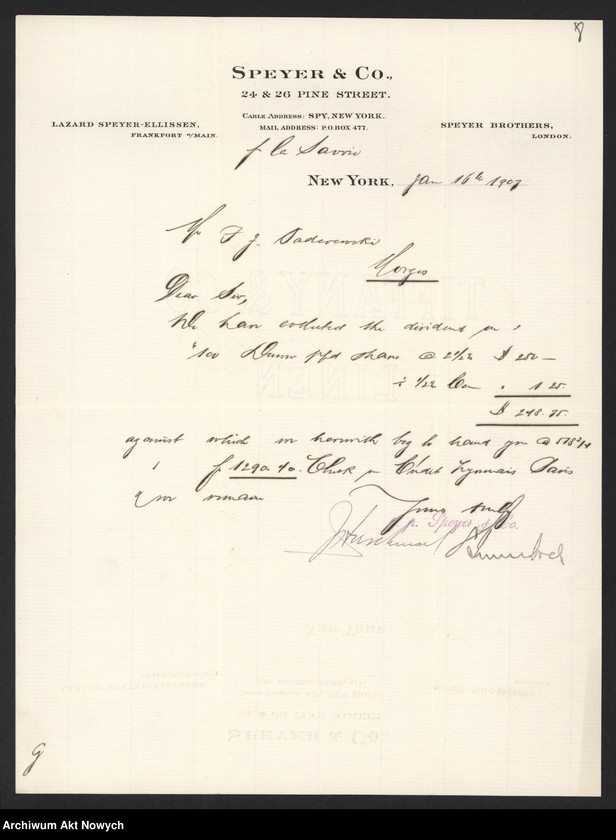 SPEYER & CO.,
24 & 26 PINE STREET.
CABLE ADDRESS: SPY, NEW YORK.
MAIL ADDRESS: P.O. BOX 477.
LAZARD SPEYER-ELLISSEN,
FRANKFORT o/MAIN.
SPEYER BROTHERS,
LONDON.
p le Savoie
NEW YORK, Jan 16th 1907
Mr I J Paderewski
Morges
Dear Sir,
We have collected the dividend on
100 pfd shares @ 2 1/2 $ 250 –
1/2 Com 1 25.
$ 248.75.
against which we herewith beg to hand you @ 518 3/4
f 1290.40. Check on Crédit Lyonnais Paris
& we remain
Yours truly
p. p. Speyer & Co.
TIFFANY & CO
LINEN
g
Archiwum Akt Nowych